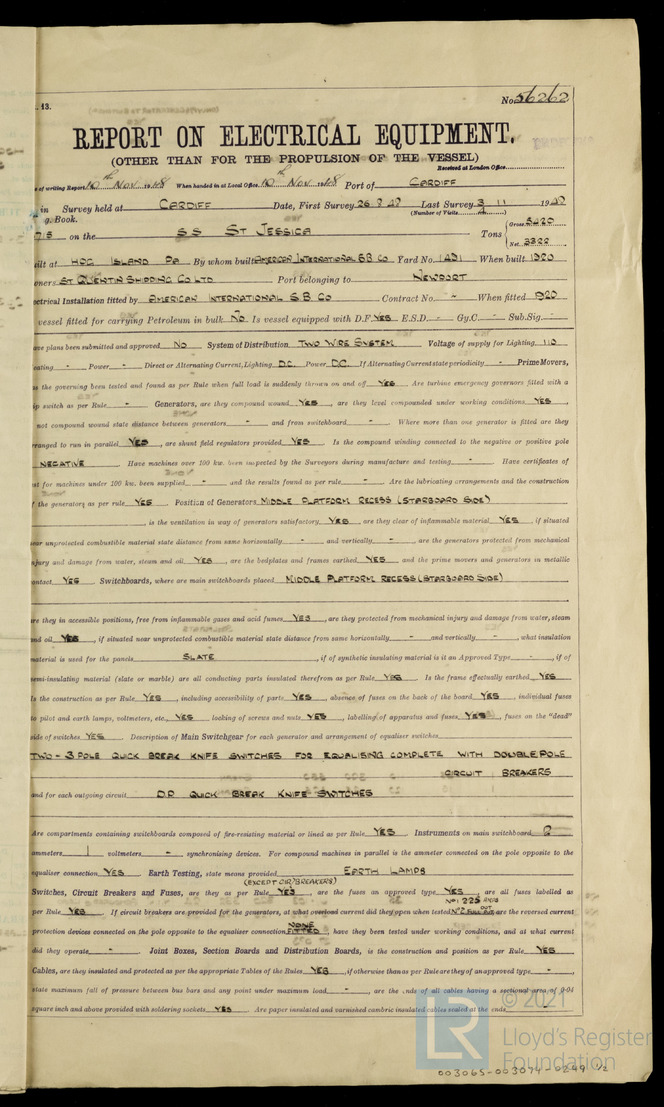 . 13.
No. 56262
REPORT ON ELECTRICAL EQUIPMENT.
(OTHER THAN FOR THE PROPULSION OF THE VESSEL)
Received at London Office
e of writing Report 10th Nov 1948 When handed in at Local Office 10th Nov 1948 Port of CARDIFF
in Survey held at CARDIFF Date, First Survey 26 8 Last Survey 3 11 19
g. Book. (Number of Visits
on the SS ST JESSICA Tons Gross 5420
Net 3322
uilt at HOG ISLAND PA By whom built AMERICAN INTERNATIONAL S.B. CO Yard No. 1491 When built 1920
wners ST QUENTIN SHIPPING CO LTD Port belonging to NEWPORT
ectrical Installation fitted by AMERICAN INTERNATIONAL S.B. CO Contract No. - When fitted 1920
vessel fitted for carrying Petroleum in bulk NO Is vessel equipped with D.F. YES E.S.D. - Gy.C. - Sub.Sig. -
ave plans been submitted and approved NO System of Distribution TWO WIRE SYSTEM Voltage of supply for Lighting 110
eating - Power - Direct or Alternating Current, Lighting D.C. Power D.C. If Alternating Current state periodicity - Prime Movers,
as the governing been tested and found as per Rule when full load is suddenly thrown on and off YES Are turbine emergency governors fitted with a
ip switch as per Rule - Generators, are they compound wound YES, are they level compounded under working conditions YES,
not compound wound state distance between generators - and from switchboard - Where more than one generator is fitted are they
rranged to run in parallel YES, are shunt field regulators provided YES Is the compound winding connected to the negative or positive pole
NEGATIVE Have machines over 100 kw. been inspected by the Surveyors during manufacture and testing - Have certificates of
est for machines under 100 kw. been supplied - and the results found as per rule - Are the lubricating arrangements and the construction
f the generators as per rule YES Position of Generators MIDDLE PLATFORM RECESS (STARBOARD SIDE)
, is the ventilation in way of generators satisfactory YES are they clear of inflammable material YES if situated
ear unprotected combustible material state distance from same horizontally - and vertically -, are the generators protected from mechanical
njury and damage from water, steam and oil YES, are the bedplates and frames earthed YES and the prime movers and generators in metallic
ontact YES Switchboards, where are main switchboards placed MIDDLE PLATFORM RECESS (STARBOARD SIDE)
are they in accessible positions, free from inflammable gases and acid fumes YES, are they protected from mechanical injury and damage from water, steam
and oil YES, if situated near unprotected combustible material state distance from same horizontally - and vertically -, what insulation
material is used for the panels SLATE, if of synthetic insulating material is it an Approved Type -, if of
semi-insulating material (slate or marble) are all conducting parts insulated therefrom as per Rule YES Is the frame effectually earthed YES
Is the construction as per Rule YES, including accessibility of parts YES, absence of fuses on the back of the board YES, individual fuses
to pilot and earth lamps, voltmeters, etc. YES locking of screws and nuts YES, labelling of apparatus and fuses YES, fuses on the "dead"
side of switches YES Description of Main Switchgear for each generator and arrangement of equaliser switches
TWO - 3 POLE QUICK BREAK KNIFE SWITCHES FOR EQUALISING COMPLETE WITH DOUBLE POLE
CIRCUIT BREAKERS
and for each outgoing circuit D.P. QUICK BREAK KNIFE SWITCHES
Are compartments containing switchboards composed of fire-resisting material or lined as per Rule YES Instruments on main switchboard 2
ammeters 1 voltmeters - synchronising devices. For compound machines in parallel is the ammeter connected on the pole opposite to the
equaliser connection YES Earth Testing, state means provided EARTH LAMPS
(EXCEPT CIR/BREAKERS)
Switches, Circuit Breakers and Fuses, are they as per Rule YES are the fuses an approved type YES, are all fuses labelled as
No 1 225 AMPS
per Rule YES If circuit breakers are provided for the generators, at what overload current did they open when tested No 2 OUT are the reversed current
protection devices connected on the pole opposite to the equaliser connection NONE FITTED, have they been tested under working conditions, and at what current
did they operate - Joint Boxes, Section Boards and Distribution Boards, is the construction and position as per Rule YES
Cables, are they insulated and protected as per the appropriate Tables of the Rules YES, if otherwise than as per Rule are they of an approved type -,
state maximum fall of pressure between bus bars and any point under maximum load -, are the ends of all cables having a sectional area of 0·04
square inch and above provided with soldering sockets YES Are paper insulated and varnished cambric insulated cables sealed at the ends
© 2021
LR
Lloyd's Register
Foundation
003065-003074-0249 1/2